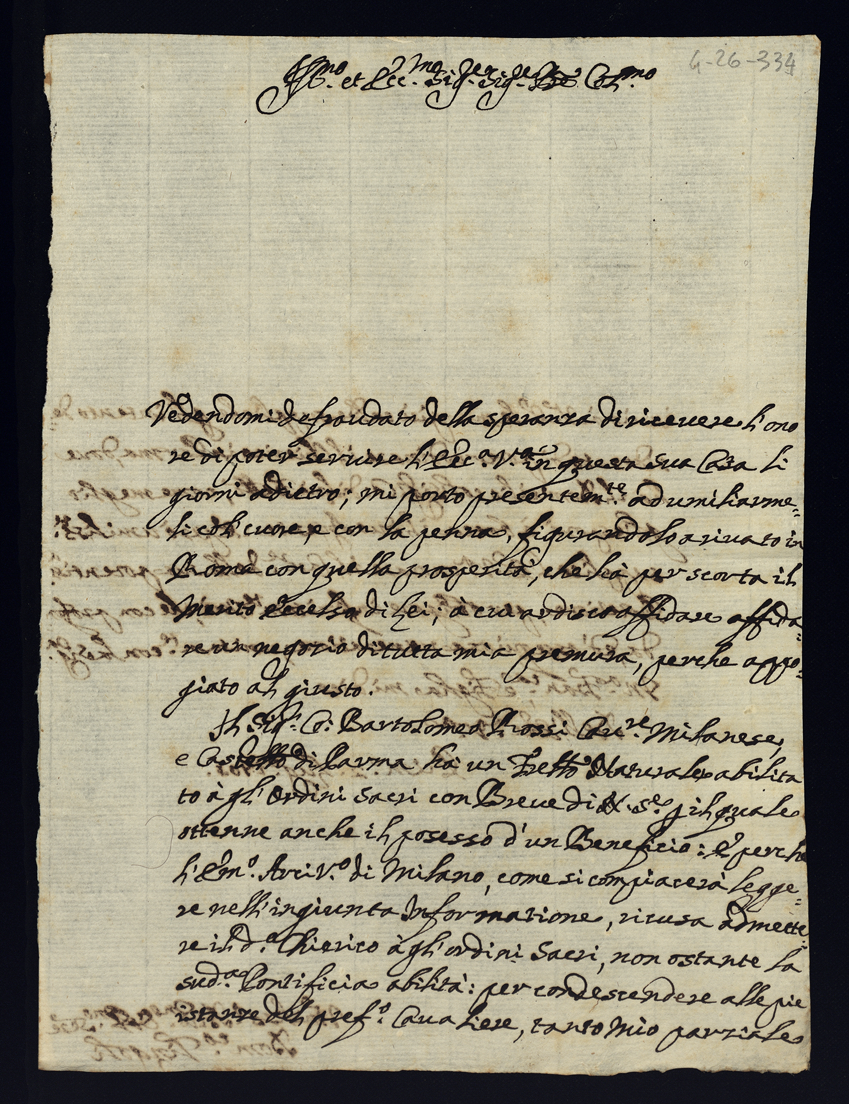 4-26-334
Ill.mo et Ecc.mo Sig.re Sig.re Col.mo
Vedendomi defraudato della speranza di ricevere l'ono
re di poter servire l'Ecc.a V.a in questa sua Casa li
giorni adietro; mi porto presentem.te ad umiliarme=
li col cuore, e con la penna, figurandolo arivato in
Roma con quella prosperità, che hà per scorta il
Merito eccelso di Lei; à cui ardisco affidare affida=
re un negozio di tutta mia premura, perche appo=
giato al giusto.
Il Sig.r Co: Bartolomeo Rossi Cav.re Milanese,
e Castello di Parma hà un Naturale abilita
to à gl'Ordini Sacri con Breve di N. Se. p il quale
ottenne anche il posesso d'un Beneficio: E perche
l'Em.o Arciv.o di Milano, come si compiacerà legge=
re nell'ingiunta Informatione, ricusa admette
re il d.o Chierico à gl'ordini Sacri, non ostante la
sud.a Pontificia abilità: per condescendere alle pie
istanze del pref.o Cavaliere, tanto Mio parziale